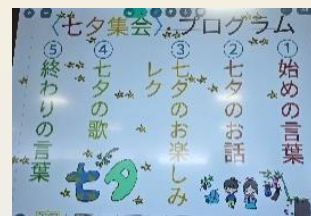 〈七夕集会〉プログラム
①始めの言葉
②七夕のお話
③七夕のお楽しみ
レク
④七夕の歌
⑤終わりの言葉
七夕